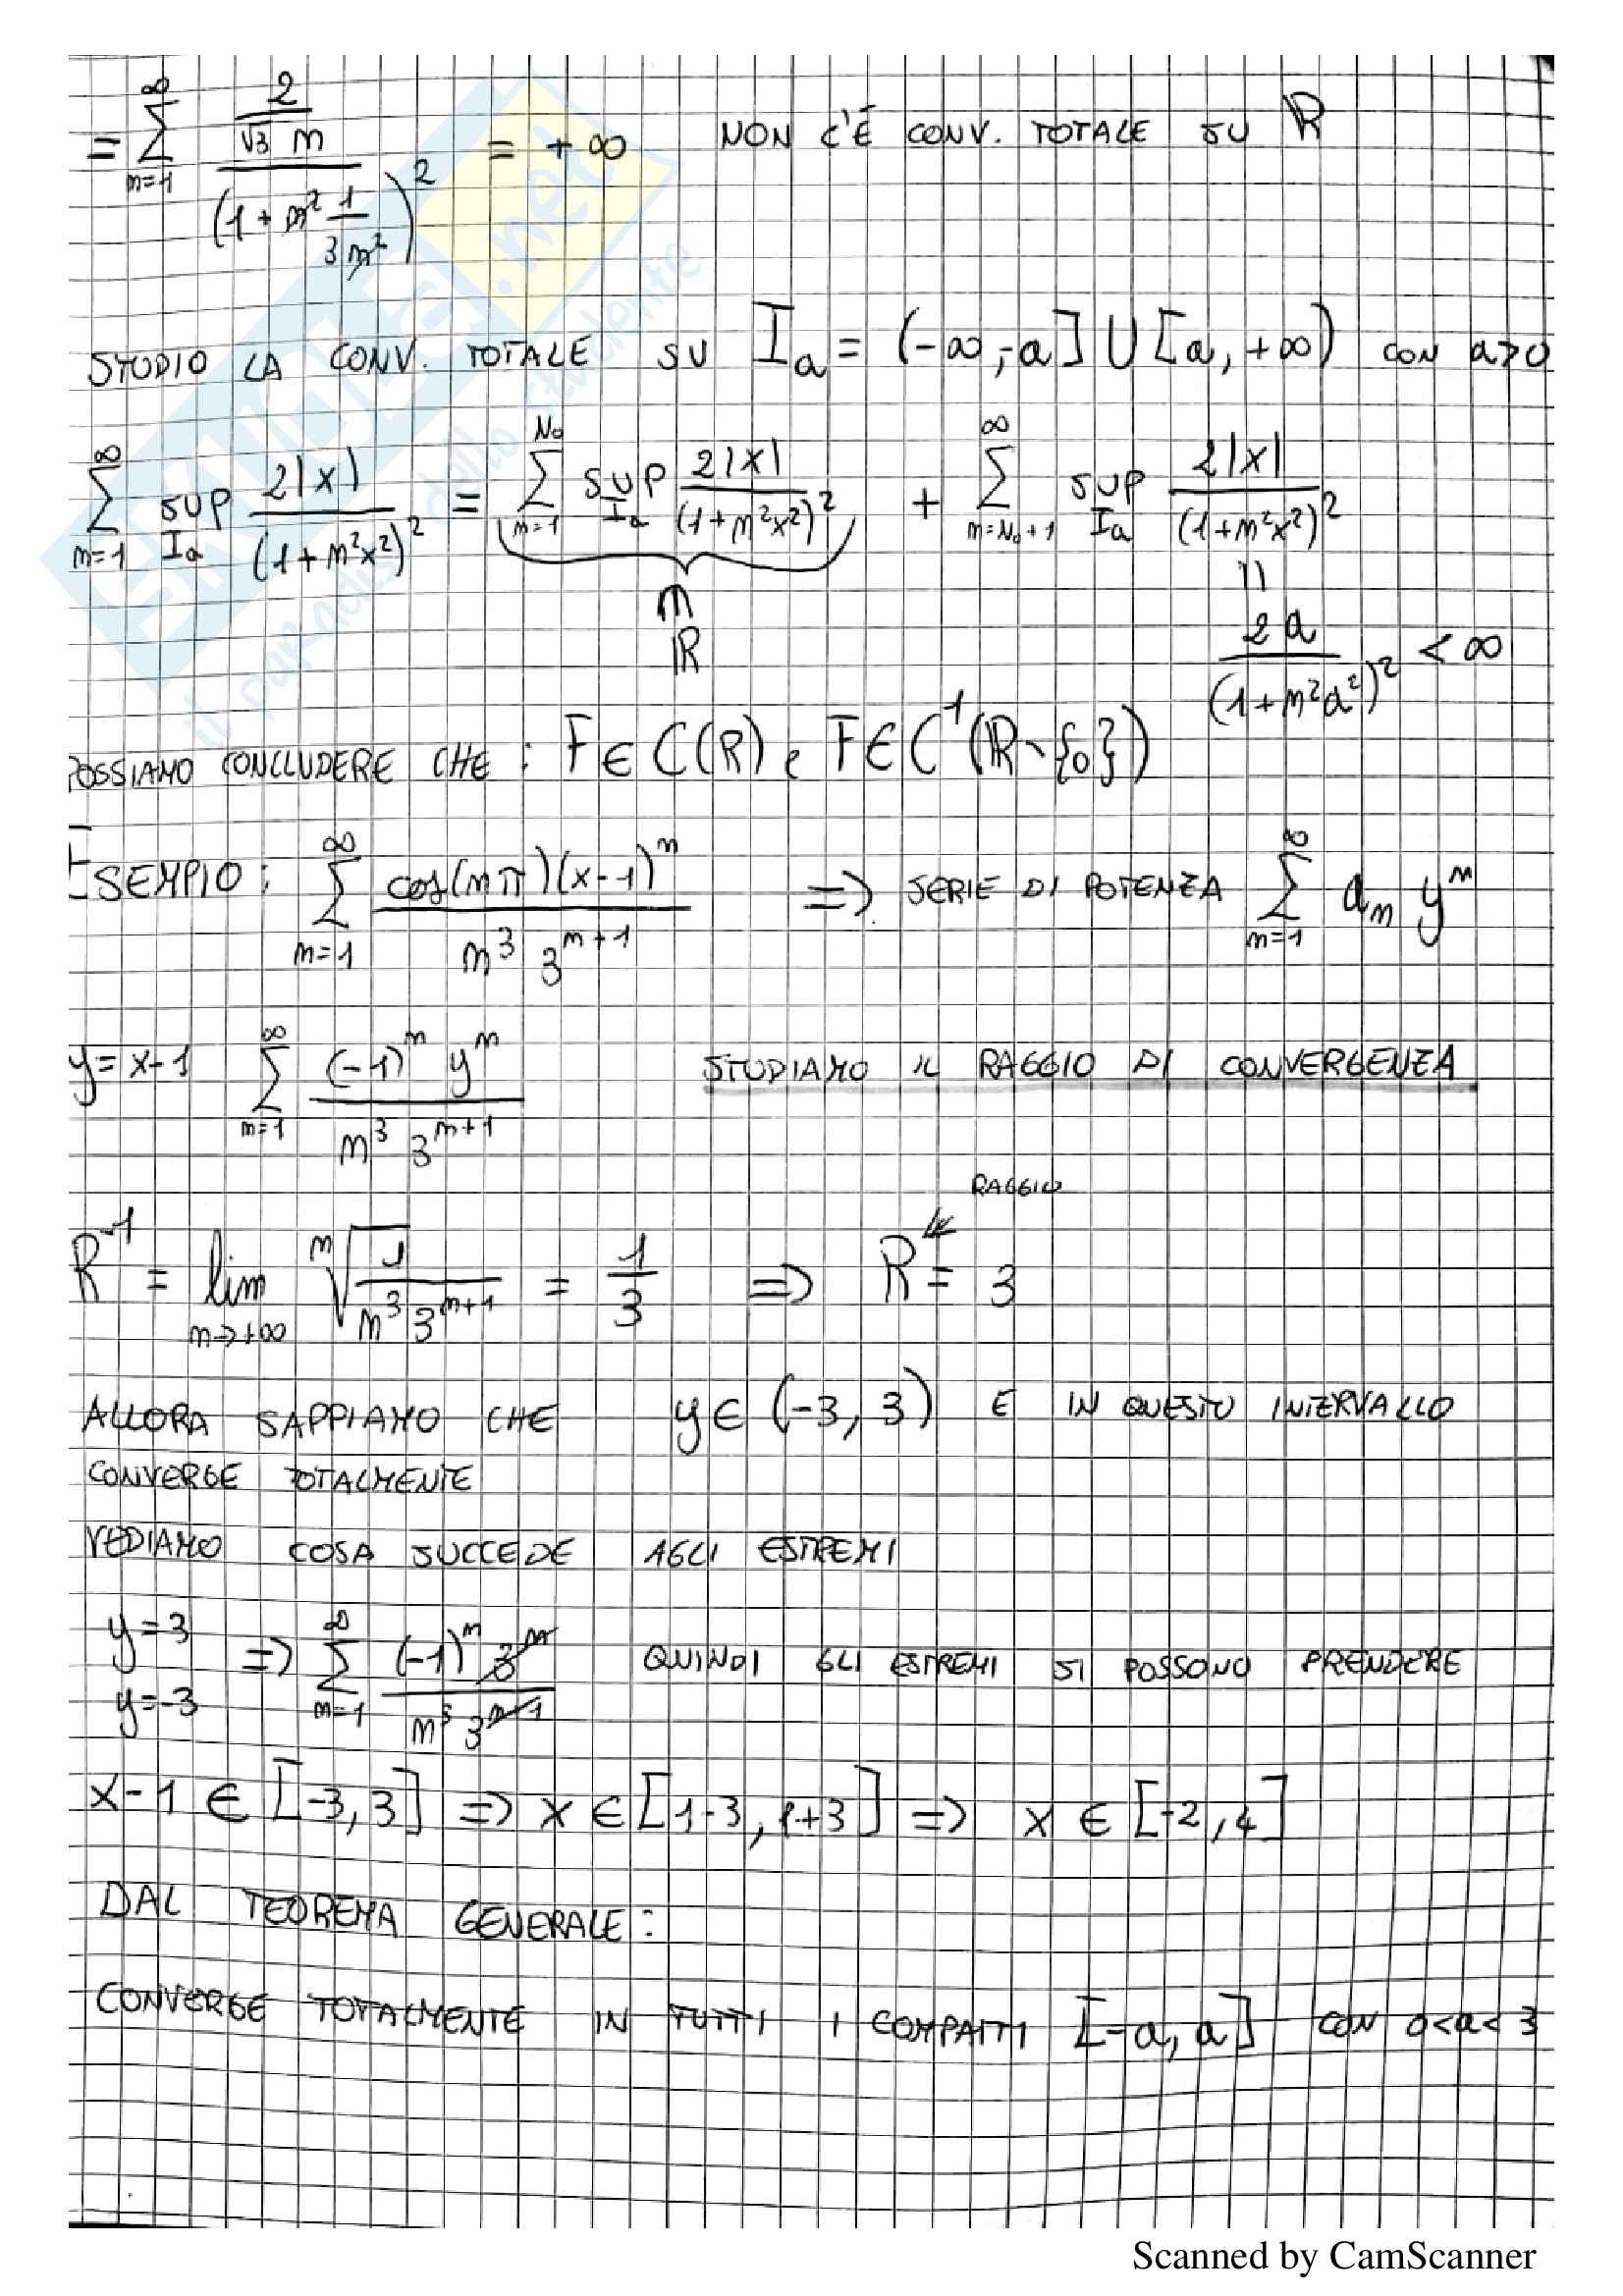 = ∑_{n=1}^{∞} (2/(√3 n)) / (1 + n² 1/(3n²))² = +∞ NON C'È CONV. TOTALE SU ℝ
STUDIO LA CONV. TOTALE SU I_a = (-∞, -a] ∪ [a, +∞) CON a>0
∑_{n=1}^{∞} SUP_{I_a} 2|x| / (1+n²x²)² = ∑_{n=1}^{N₀} SUP_{I_a} 2|x| / (1+n²x²)² + ∑_{n=N₀+1}^{∞} SUP_{I_a} 2|x| / (1+n²x²)²
∩ ℝ
|| 2a / (1+n²a²)² < ∞
POSSIAMO CONCLUDERE CHE: F∈C(ℝ) e F∈C¹(ℝ∖{0})
ESEMPIO: ∑_{n=1}^{∞} cos(nπ)(x-1)^n / (n³ 3^{n+1}) => SERIE DI POTENZA ∑_{n=1}^{∞} a_n y^n
y = x-1 ∑_{n=1}^{∞} (-1)^n y^n / (n³ 3^{n+1}) STUDIAMO IL RAGGIO DI CONVERGENZA
RAGGIO
R^{-1} = lim_{n→+∞} ⁿ√(1 / (n³ 3^{n+1})) = 1/3 => R = 3
ALLORA SAPPIAMO CHE y∈(-3, 3) E IN QUESTO INTERVALLO
CONVERGE TOTALMENTE
VEDIAMO COSA SUCCEDE AGLI ESTREMI
y=3
y=-3 => ∑_{n=1}^{∞} (-1)^n 3^n / (n³ 3^{n+1}) QUINDI GLI ESTREMI SI POSSONO PRENDERE
x-1 ∈ [-3,3] => x ∈ [1-3, 1+3] => x ∈ [-2,4]
DAL TEOREMA GENERALE:
CONVERGE TOTALMENTE IN TUTTI I COMPATTI [-a, a] CON 0<a<3
SKUOLA.net
il paradiso dello studente
Scanned by CamScanner